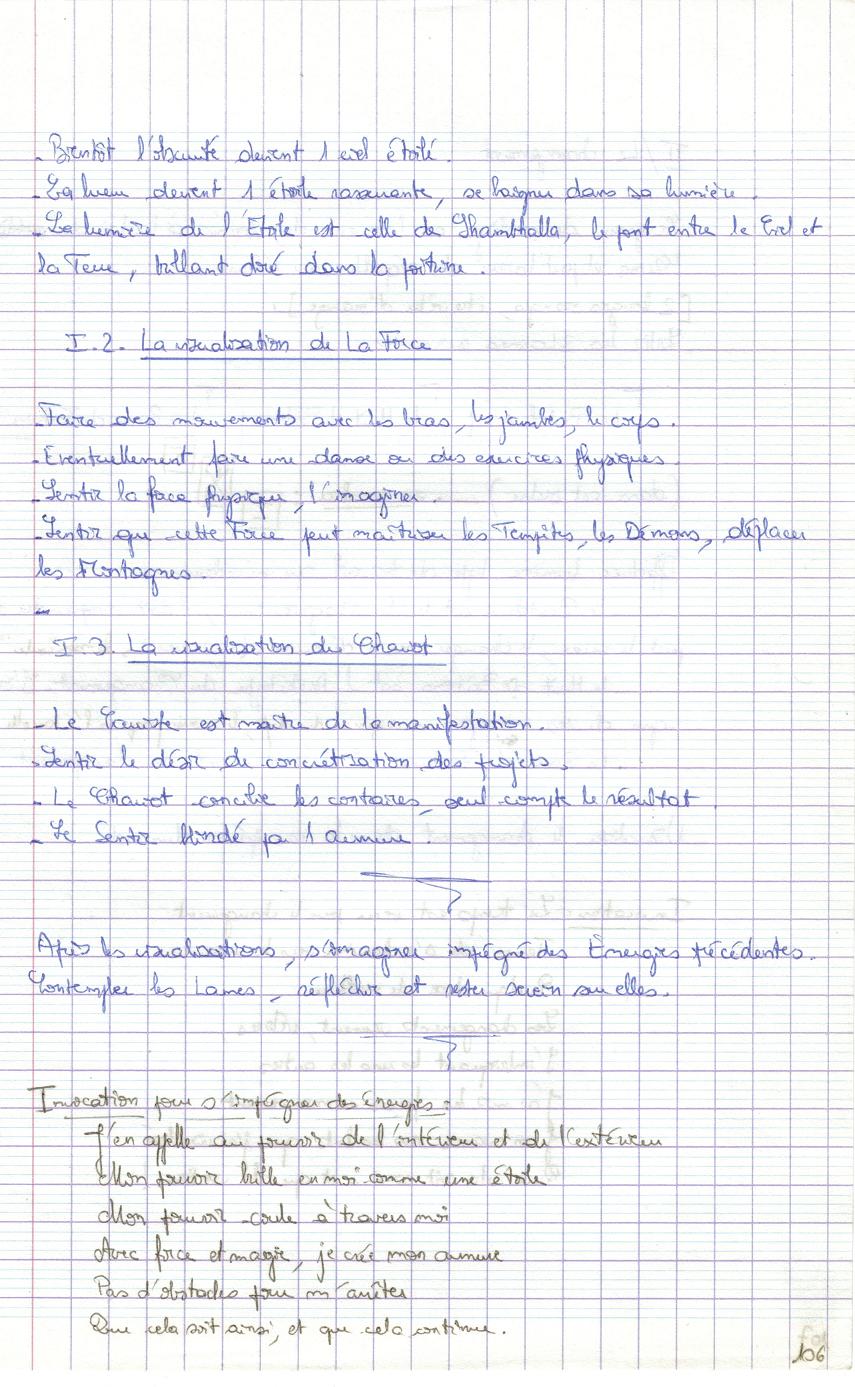 - Bientôt l'obscurité devient 1 ciel étoilé.
- La lueur devient 1 étoile rassurante, se baigner dans sa lumière.
- La lumière de l'Etoile est celle de Shambhalla, le pont entre le Ciel et
la Terre, brillant doré dans la poitrine.
I.2. La visualisation de La Force
- Faire des mouvements avec les bras, les jambes, le corps.
- Eventuellement faire une danse ou des exercices physiques.
- Sentir la force physique, l'imaginer.
- Sentir que cette Force peut maîtriser les Tempêtes, les Démons, déplacer
les Montagnes.
I.3. La visualisation du Chariot
- Le est maître de la manifestation.
- Sentir le désir de concrétisation des projets.
- Le Chariot concilie les contraires, seul compte le résultat.
- Se Sentir blindé par 1 armure.
Après les visualisations, s'imaginer imprégné des Énergies précédentes.
Contempler les Lames, réfléchir et rester serein sur elles.
Invocation pour s'imprégner des énergies :
J'en appelle au pouvoir de l'intérieur et de l'extérieur
Mon pouvoir brille en moi comme une étoile
Mon pouvoir coule à travers moi
Avec force et magie, je crée mon armure
Pas d'obstacles pour m'arrêter
Que cela soit ainsi, et que cela continue.
106